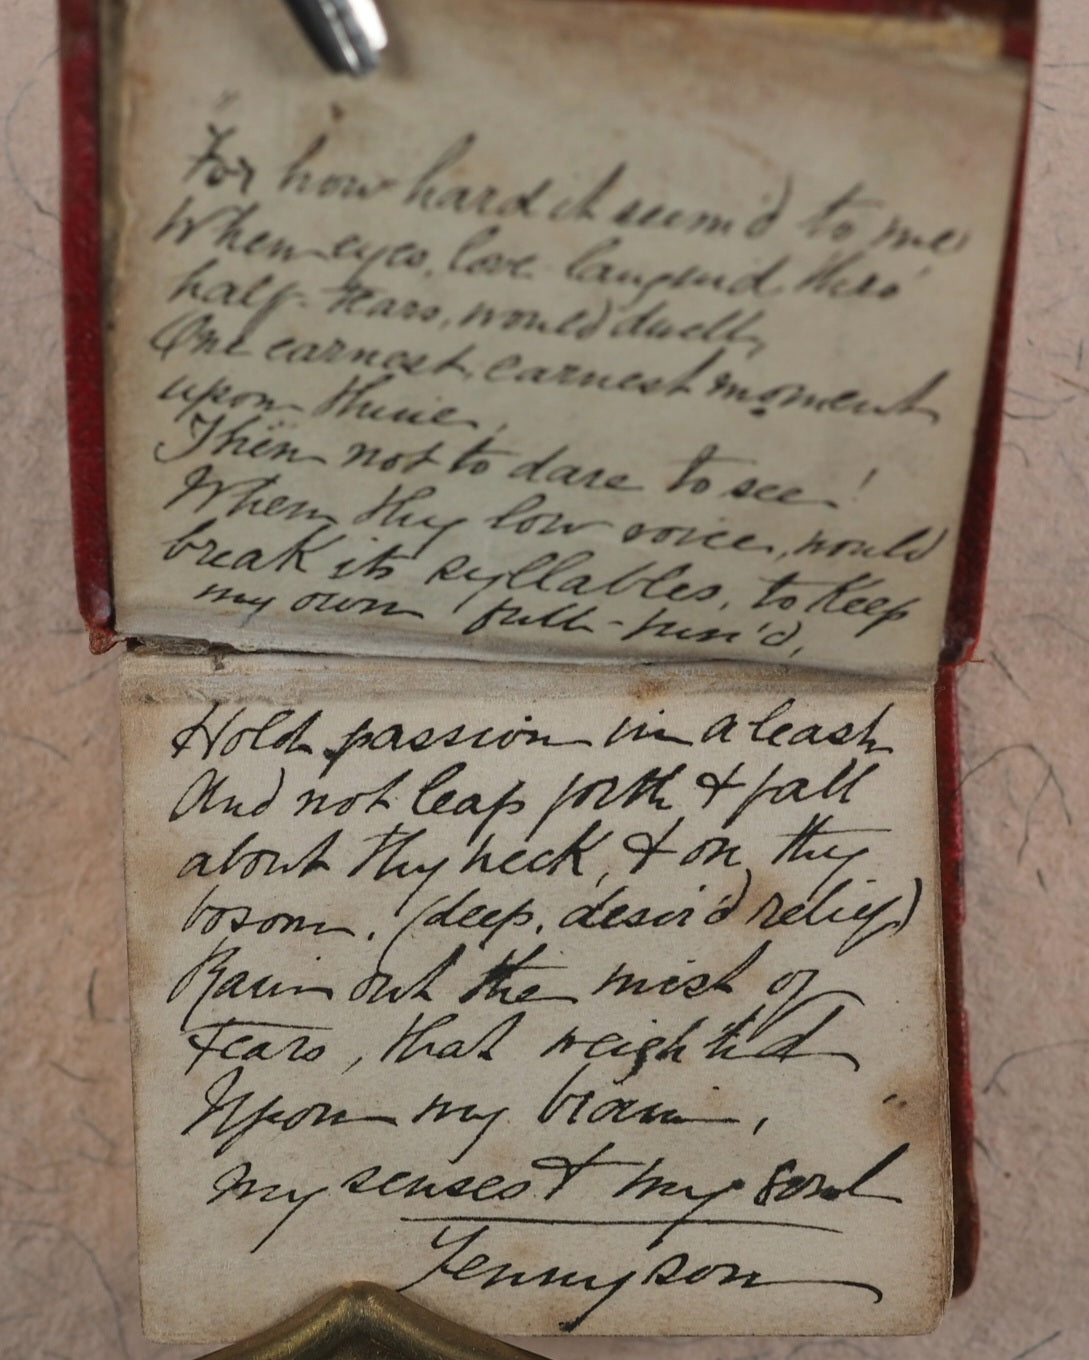 "For how hard it seem'd to me
When eyes, love languid thro'
half-tears, would dwell,
One earnest, earnest moment
upon thine,
Then not to dare to see!
When thy low voice, would
break its syllables, to keep
my own full-tun'd,
Hold passion in a leash
And not leap forth & fall
about thy neck, & on thy
bosom, (deep, desir'd relief)
Rain out the mist of
Tears, that weigh'd
Upon my brain,
my senses & my soul"
Tennyson